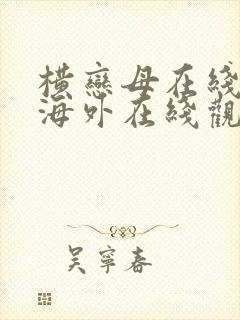 橫戀母在綫
海外在綫觀
吴寧春